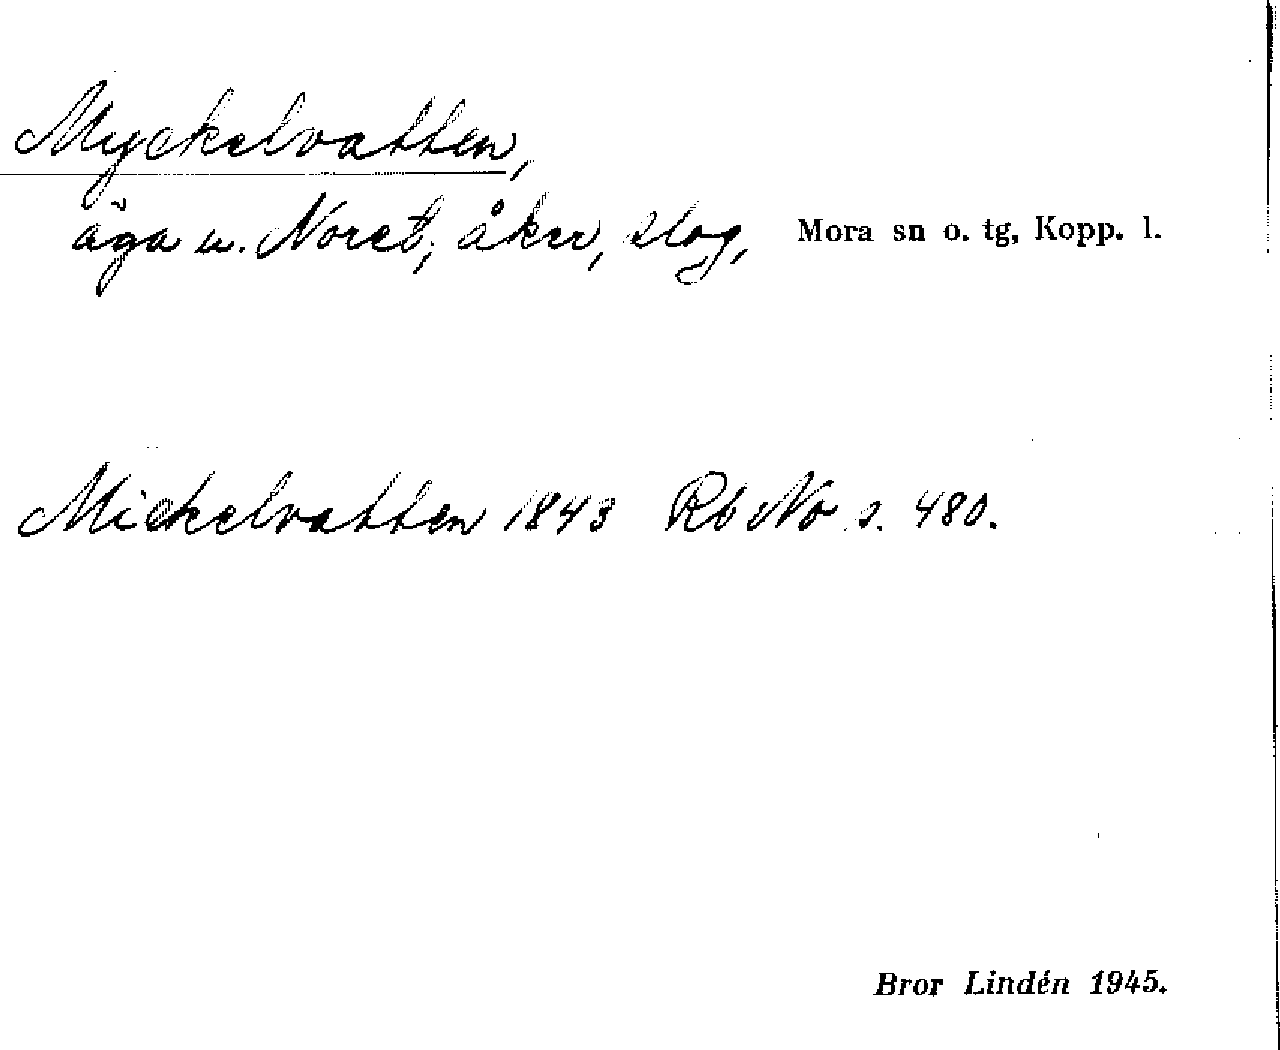 Myckelvatten,
äga u. Noret, åker, slog, Mora sn o. tg, Kopp. l.
Mickelvatten 1843 Rb No s. 480.
Bror Lindén 1945.